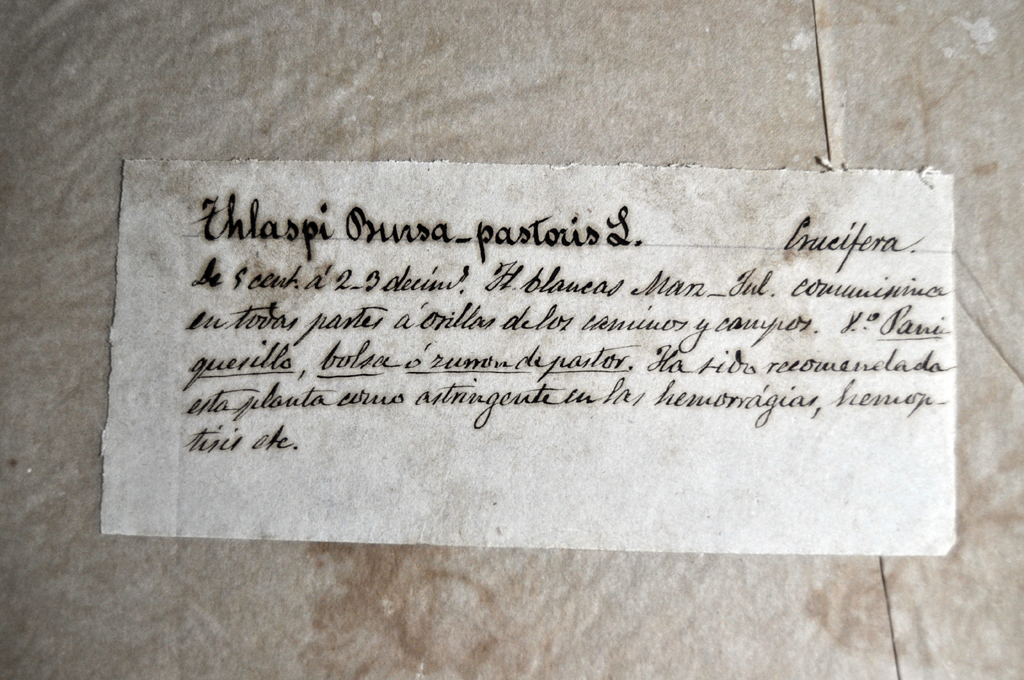 Thlaspi Bursa-pastoris L. Crucífera.
De 5 cent. á 2-3 decim.s Fl. blancas Marz-Jul. comunisima
en todas partes á orillas de los caminos y campos. V.o Pani
quesillo, bolsa ó zurron de pastor. Ha sido recomendada
esta planta como astringente en las hemorrágias, hemop-
tisis etc.